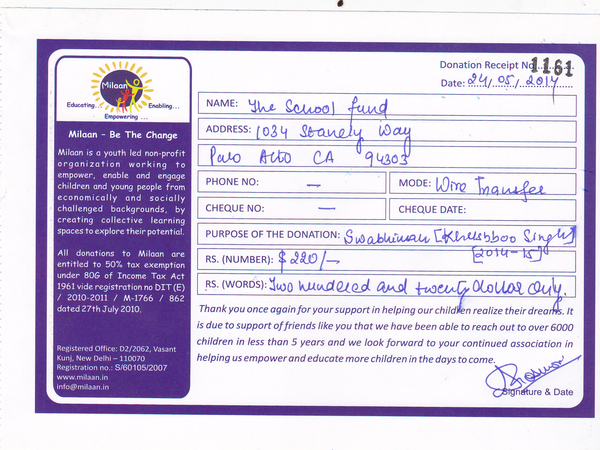 Milaan
Educating... Enabling...
Empowering ...
Milaan - Be The Change
Milaan is a youth led non-profit
organization working to
empower, enable and engage
children and young people from
economically and socially
challenged backgrounds, by
creating collective learning
spaces to explore their potential.
All donations to Milaan are
entitled to 50% tax exemption
under 80G of Income Tax Act
1961 vide registration no DIT (E)
/ 2010-2011 / M-1766 / 862
dated 27th July 2010.
Registered Office: D2/2062, Vasant
Kunj, New Delhi – 110070
Registration no.: S/60105/2007
www.milaan.in
info@milaan.in
Donation Receipt No. 1161
Date: 24/05/2014
NAME: The School fund
ADDRESS: 1034 Stanely Way
Palo Alto CA 94303
PHONE NO: — MODE: Wire Transfer
CHEQUE NO: — CHEQUE DATE:
PURPOSE OF THE DONATION: Swabhiman [Khushboo Singh]
[2014-15]
RS. (NUMBER): $ 220/-
RS. (WORDS): Two hundered and twenty dollar only.
Thank you once again for your support in helping our children realize their dreams. It
is due to support of friends like you that we have been able to reach out to over 6000
children in less than 5 years and we look forward to your continued association in
helping us empower and educate more children in the days to come.
Signature & Date